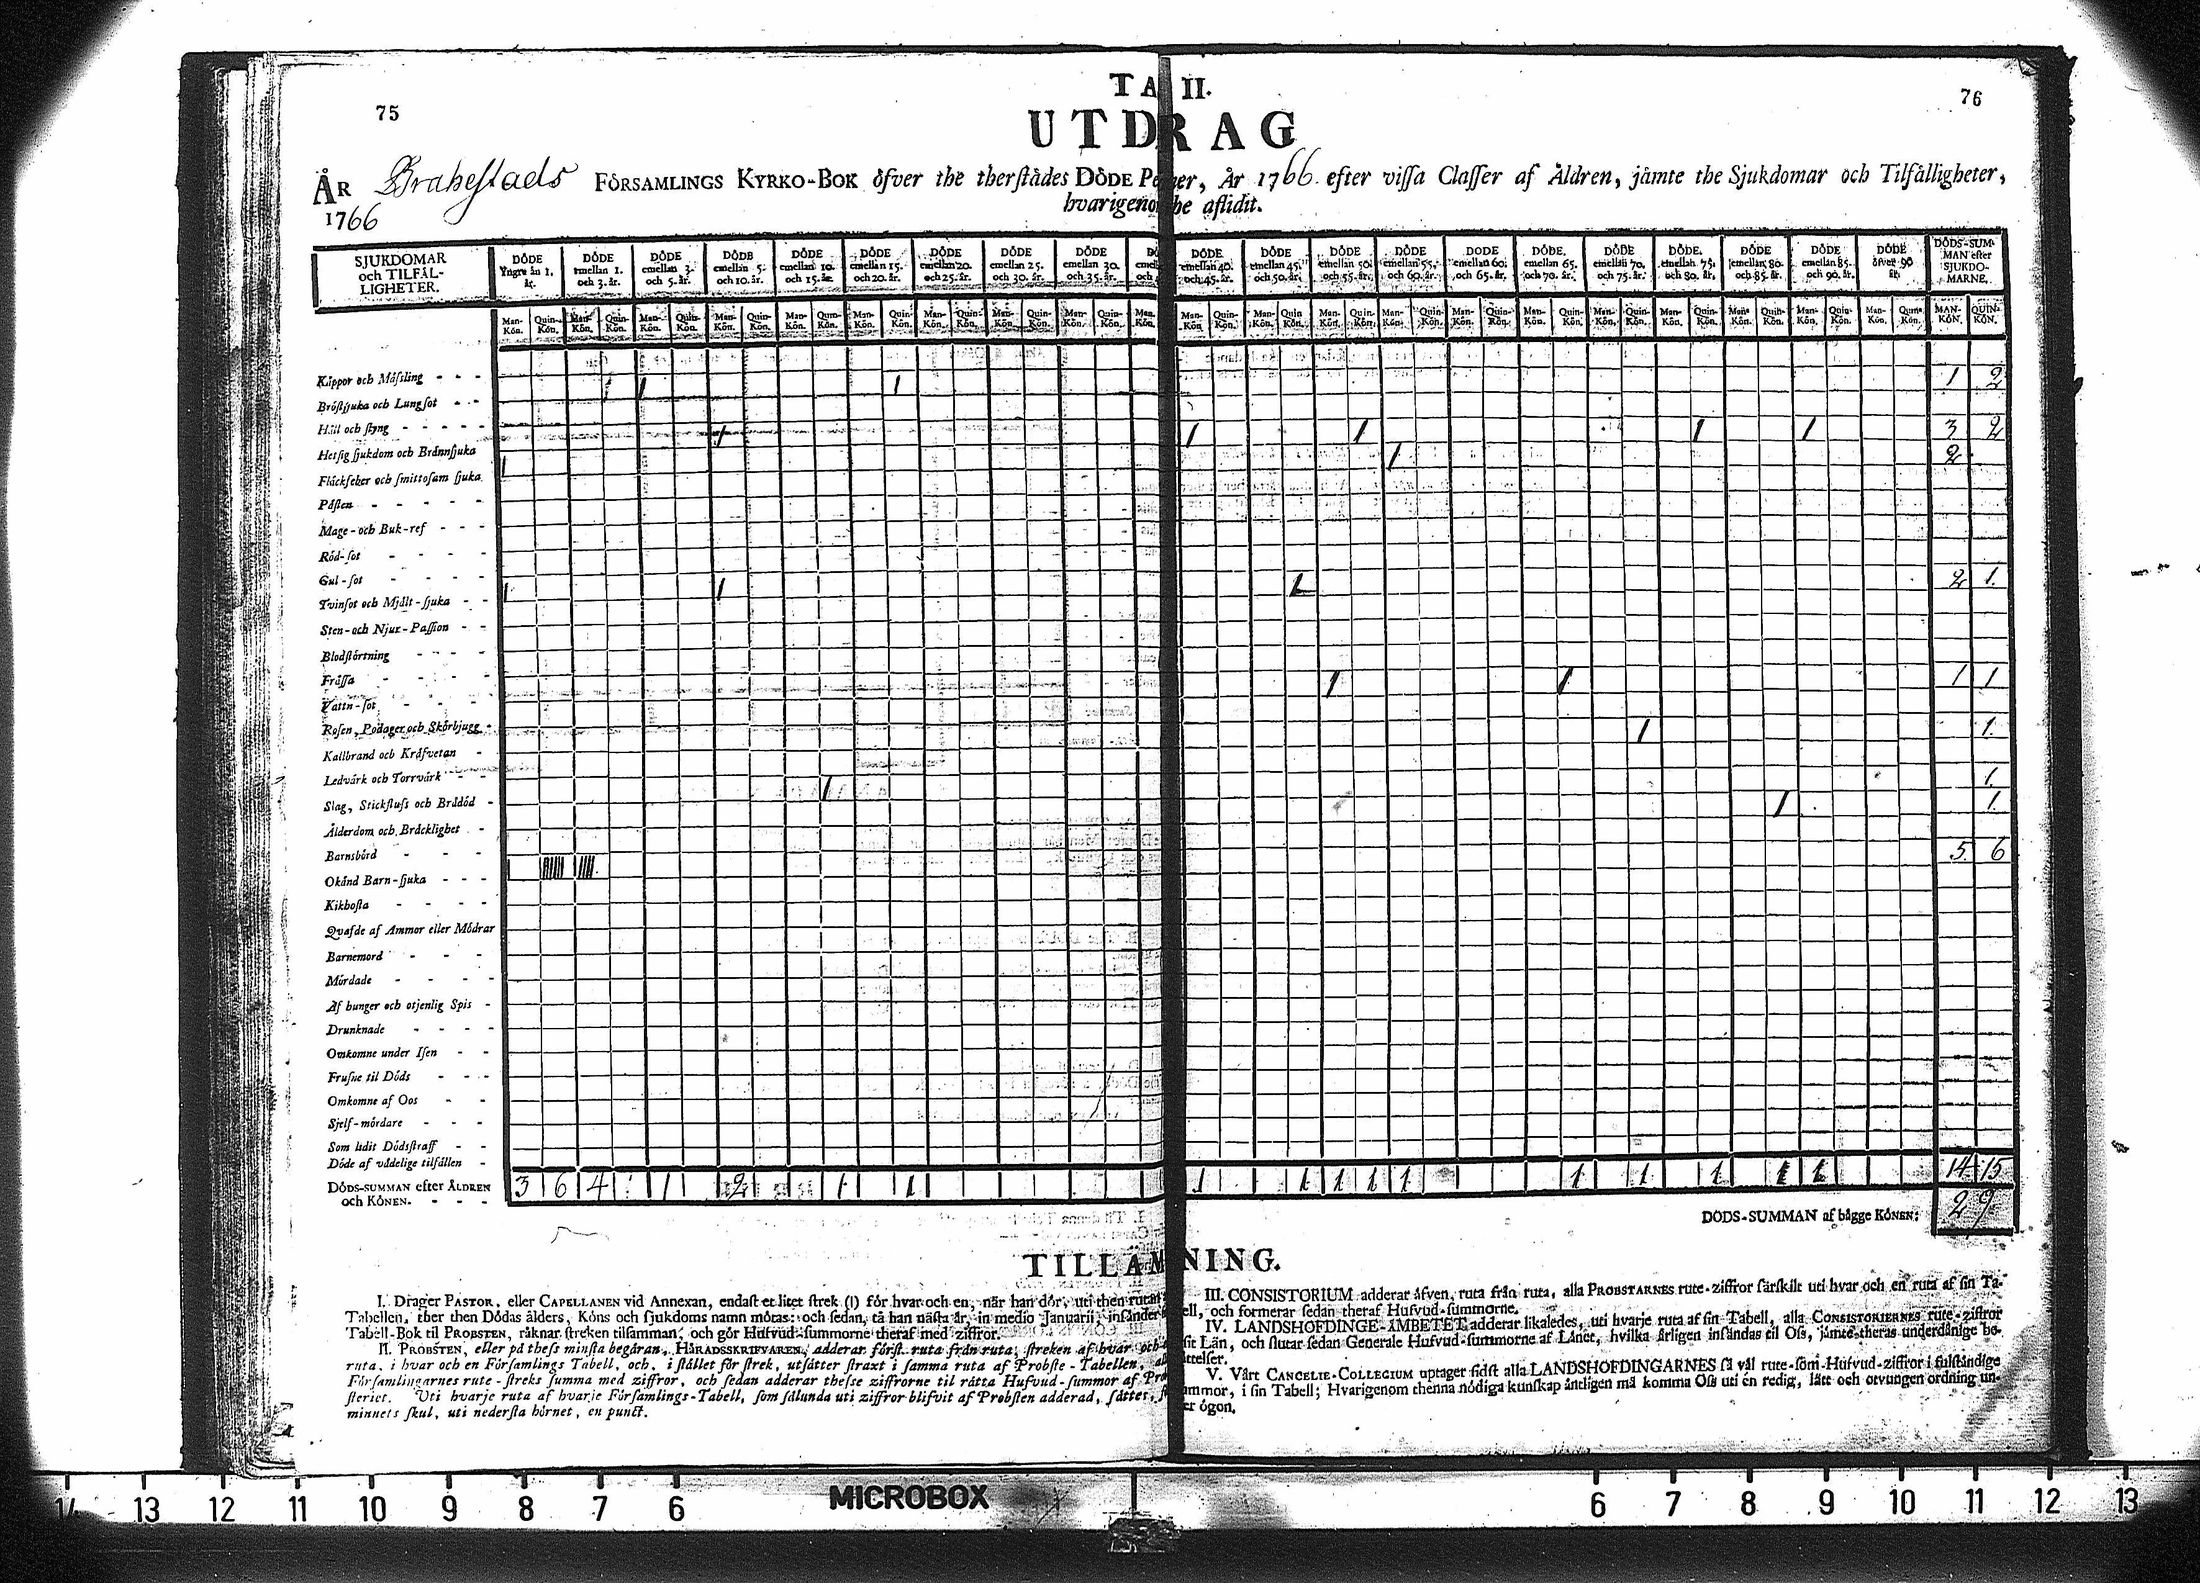 TA II.
75
76
UTDRAG
ÅR Brahestads FÖRSAMLINGS KYRKO-BOK öfver the therstädes DÖDE Pe ner, År 1766. efter vissa Classer af Åldren, jämte the Sjukdomar och Tilfälligheter,
1766
hvarigenom the aflidit.
SJUKDOMAR och TILFÄLLIGHETER.
DÖDE Yngre än 1. år.
DÖDE emellan 1. och 3. år.
DÖDE emellan 3. och 5. år.
DÖDE emellan 5. och 10. år.
DÖDE emellan 10. och 15. år.
DÖDE emellan 15. och 20. år.
DÖDE emellan 20. och 25. år.
DÖDE emellan 25. och 30. år.
DÖDE emellan 30. och 35. år.
DÖDE emellan 40. och 45. år.
DÖDE emellan 45. och 50. år.
DÖDE emellan 50. och 55. år.
DÖDE emellan 55. och 60. år.
DÖDE emellan 60. och 65. år.
DÖDE. emellan 65. och 70. år.
DÖDE emellan 70. och 75. år.
DÖDE. emellan 75. och 80. år.
DÖDE emellan 80. och 85. år.
DÖDE emellan 85. och 90. år.
DÖDE öfver 90 år.
DÖDS-SUMMAN efter SJUKDOMARNE.
Man-Kön. Quin-Kön. Man-Kön. Quin-Kön. Man-Kön. Quin-Kön. Man-Kön. Quin-Kön. Man-Kön. Quin-Kön. Man-Kön. Quin-Kön. Man-Kön. Quin-Kön. Man-Kön. Quin-Kön. Man-Kön. Quin-Kön. Man-Kön. Man-Kön. Quin-Kön. Man-Kön. Quin-Kön. Man-Kön. Quin-Kön. Man-Kön. Quin-Kön. Man-Kön. Quin-Kön. Man-Kön. Quin-Kön. Man-Kön. Quin-Kön. Man-Kön. Quin-Kön. Man-Kön. Quin-Kön. Man-Kön. Quin-Kön. Man-Kön. Quin-Kön. MAN-KÖN. QUIN-KÖN.
Koppor och Mässling - - - 1 1 1 1 2
Bröstsjuka och Lungsot - -
Håll och styng - - - - - 1 1 1 1 1 3 2
Hetsig sjukdom och Brännsjuka 1 1 2
Fläckfeber och smittosam sjuka.
Påsten - - - -
Mage-och Buk-ref - - -
Röd-sot - - - -
Gul-sot - - - - 1 1 1 2 1.
Tvinsot och Mjält-sjuka - -
Sten-och Njur-Passion - -
Blodstörtning - - -
Frässa - - - - 1 1 1 1
Vattn-sot - - -
Rosen, Podager och Skörbjugg - 1 1.
Kallbrand och Kräfvetan -
Ledvärk och Torrvärk - - 1 1.
Slag, Stickfluss och Brådöd - 1 1.
Ålderdom och Bräcklighet -
Barnsbörd - - - 5. 6
Okänd Barn-sjuka - - -
Kikhosta - - - -
Qvafde af Ammor eller Mödrar
Barnemord - - -
Mördade - - - -
Af hunger och otjenlig Spis -
Drunknade - - -
Omkomne under Isen - -
Frusne til Döds - - -
Omkomne af Oos - -
Sjelf-mördare - - -
Som lidit Dödsstraff - -
Döde af vådelige tilfällen -
DÖDS-SUMMAN efter ÅLDREN och KÖNEN. - - - 3 6 4 1 2 1 1 1 1 1 1 1 1 1 1 1 1 14 15
DÖDS-SUMMAN af bägge KÖNEN: 29
TILLÄM NING.
I. Drager PASTOR, eller CAPELLANEN vid Annexan, endast et litet strek (I) för hvar och en, när han dör, uti then rutan
Tabellen, ther then Dödas ålders, Köns och sjukdoms namn mötas: och sedan, tå han nästa år, in medio Januarii, insänder
Tabell-Bok til PROBSTEN, räknar streken tilsamman, och gör Hufvud-summorne theraf med ziffror.
II. PROBSTEN, eller på thess minsta begäran, HÄRADSSKRIFVAREN, adderar först ruta från ruta, streken af hvar och
ruta, i hvar och en Församlings Tabell, och, i stället för strek, utsätter straxt i samma ruta af Probste-Tabellen,
Församlingarnes rute-streks summa med ziffror, och sedan adderar thesse ziffrorne til rätta Hufvud-summor af Pro
steriet. Uti hvarje ruta af hvarje Församlings-Tabell, som sålunda uti ziffror blifvit af Probsten adderad, sättes,
minnets skul, uti nedersta hörnet, en punct.
III. CONSISTORIUM adderar äfven, ruta från ruta, alla PROBSTARNES rute-ziffror särskilt uti hvar och en ruta af sin Ta-
ell, och formerar sedan theraf Hufvud-summorne.
IV. LANDSHOFDINGE-ÄMBETET adderar likaledes, uti hvarje ruta af sin Tabell, alla CONSISTORIERNES rute-ziffror
sit Län, och slutar sedan Generale Hufvud-summorne af Länet, hvilka årligen insändas til Oss, jämte theras underdånige be-
ättelser.
V. Vårt CANCELIE-COLLEGIUM uptager sidst alla LANDSHOFDINGARNES så väl rute-som-Hufvud-ziffror i fulständige
ummor, i sin Tabell; Hvarigenom thenna nödiga kunskap äntligen må komma Oss uti en redig, lätt och otvungen ordning un-
er ögon.
14 13 12 11 10 9 8 7 6 MICROBOX 6 7 8 9 10 11 12 13